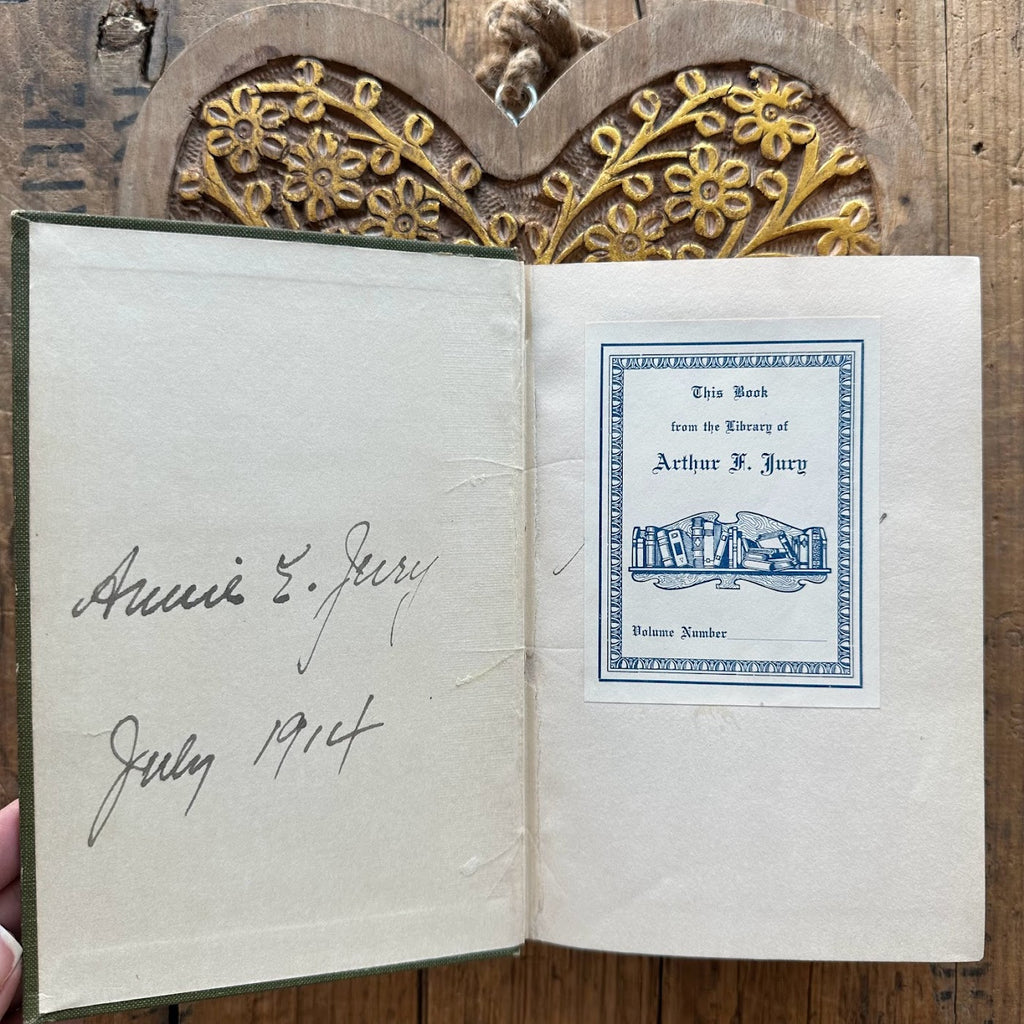 Annie E. Jury
July 1914
This Book
from the Library of
Arthur F. Jury
Volume Number